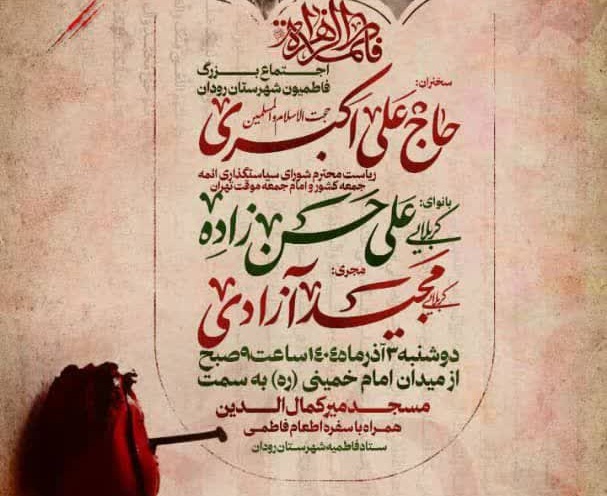 فاطمة الزهراء
اجتماع بزرگ
فاطمیون شهرستان رودان
سخنران:
حجت الاسلام والمسلمین
حاج علی اکبری
ریاست محترم شورای سیاستگذاری ائمه
جمعه کشور و امام جمعه موقت تهران
بانوای:
کربلایی علی حسن زاده
مجری:
کربلایی مجید آزادی
دوشنبه ۳ آذرماه ۱۴۰۴ ساعت ۹ صبح
از میدان امام خمینی (ره) به سمت
مسجد میرکمال الدین
همراه با سفره اطعام فاطمی
ستاد فاطمیه شهرستان رودان